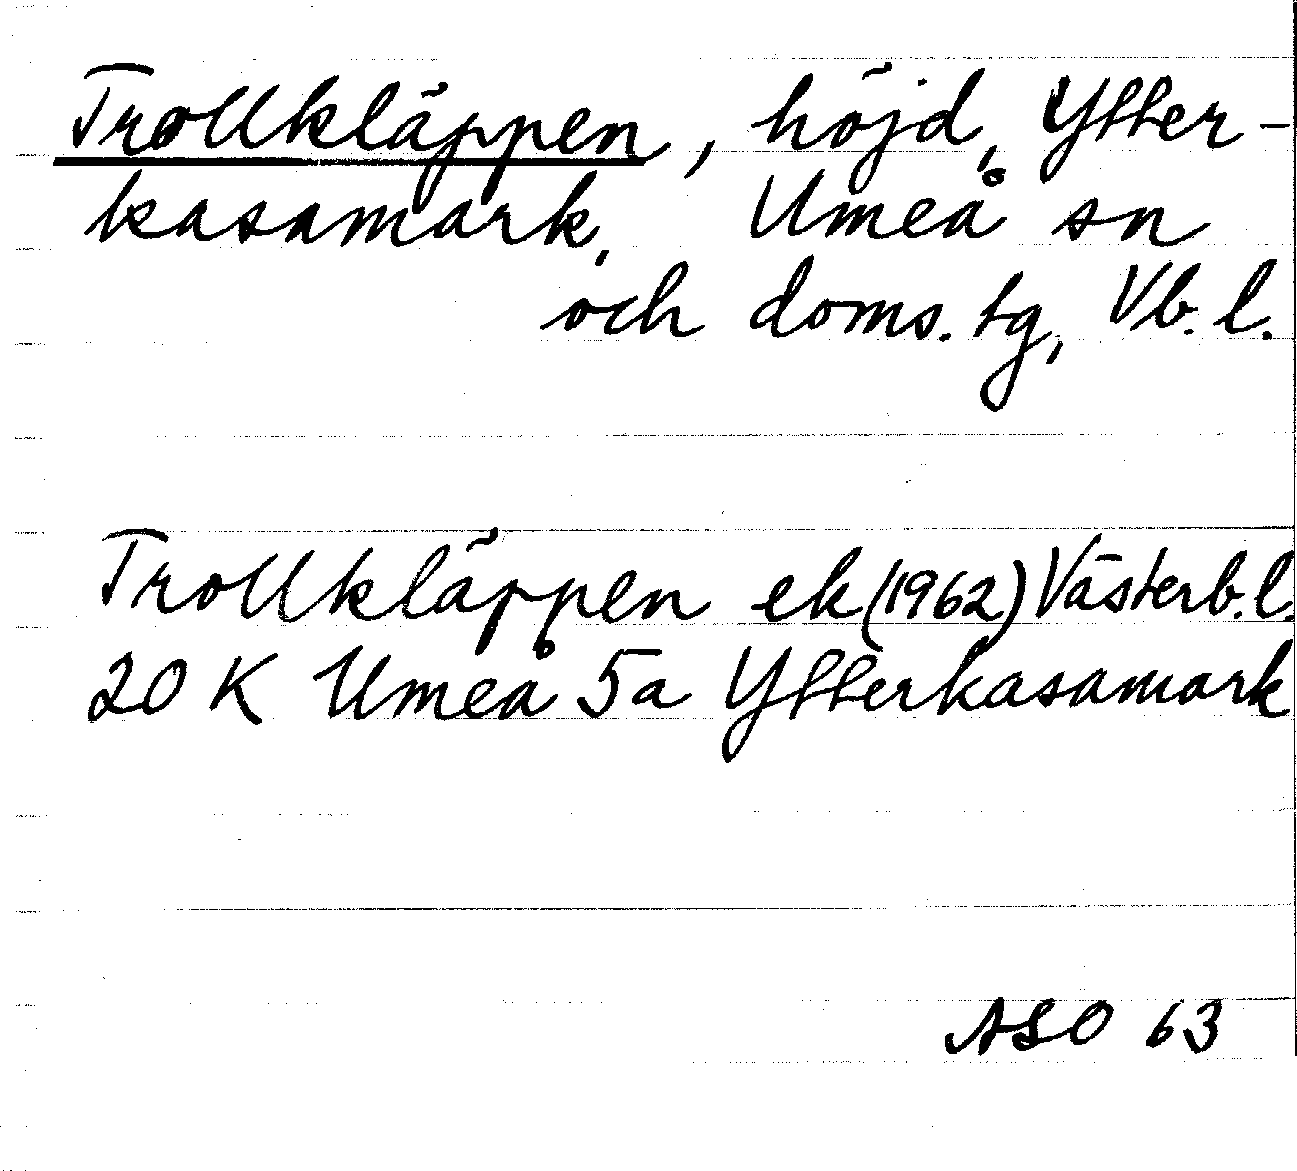 Trollkläppen, höjd, Ytter-
kasamark, Umeå sn
och doms. tg, Vb. l.
Trollkläppen ek (1962) Västerb. l.
20 K Umeå 5a Ytterkasamark
ASO 63